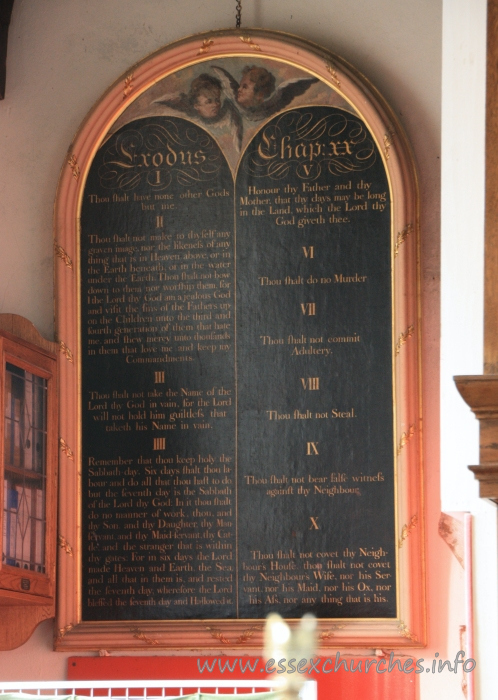 Exodus
I
Thou ſhalt have none other Gods
but me
II
Thou ſhalt not make to thy ſelf any
graven image, nor the likeneſs of any
thing that is in Heaven above, or in
the Earth beneath, or in the water
under the Earth. Thou ſhalt not bow
down to them nor worſhip them, for
I the Lord thy God am a jealous God
and viſit the ſins of the Fathers up
on the Children unto the third and
fourth generation of them that hate
me, and ſhew mercy unto thouſands
in them that love me and keep my
Commandments.
III
Thou ſhalt not take the Name of the
Lord thy God in vain, for the Lord
will not hold him guiltleſs that
taketh his Name in vain.
IIII
Remember that thou keep holy the
Sabbath-day. Six days ſhalt thou la-
bour and do all that thou haſt to do
but the ſeventh day is the Sabbath
of the Lord thy God. In it thou ſhalt
do no manner of work, thou, and
thy Son, and thy Daughter, thy Man
Servant, and thy Maid-ſervant, thy Cat-
tle, and the stranger that is within
thy gates. For in six days the Lord
made Heaven and Earth, the Sea,
and all that in them is, and rested
the ſeventh day, wherefore the Lord
bleſſed the ſeventh day and Hallowed it.
Chap: xx
V
Honour thy Father and thy
Mother, that thy days may be long
in the Land, which the Lord thy
God giveth thee.
VI
Thou ſhalt do no Murder
VII
Thou ſhalt not commit
Adultery.
VIII
Thou ſhalt not Steal.
IX
Thou ſhalt not bear falſe witneſs
against thy Neighbour
X
Thou ſhalt not covet thy Neigh-
bour's Houſe, thou ſhalt not covet
thy Neighbour's Wife, nor his Ser-
vant, nor his Maid, nor his Ox, nor
his Aſs, nor any thing that is his.
www.essexchurches.info